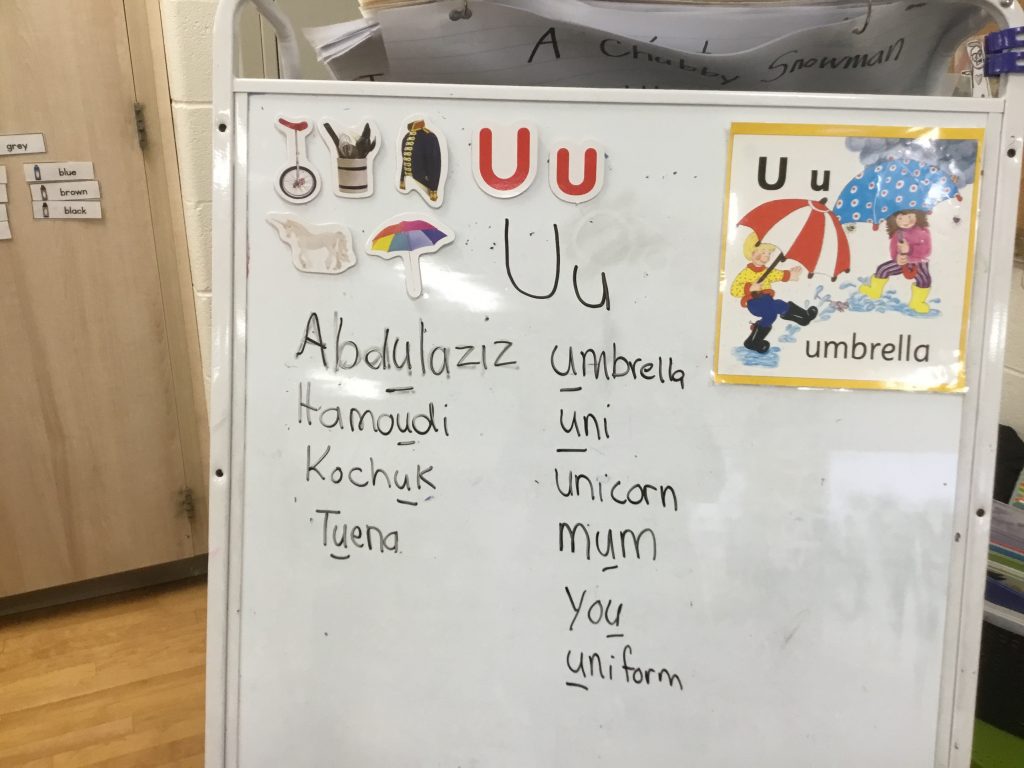 A Chubby Snowman
grey
blue
brown
black
U u
U u
U u
umbrella
Abdulaziz
Hamoudi
Kochuk
Tuena
umbrella
uni
unicorn
mum
you
uniform